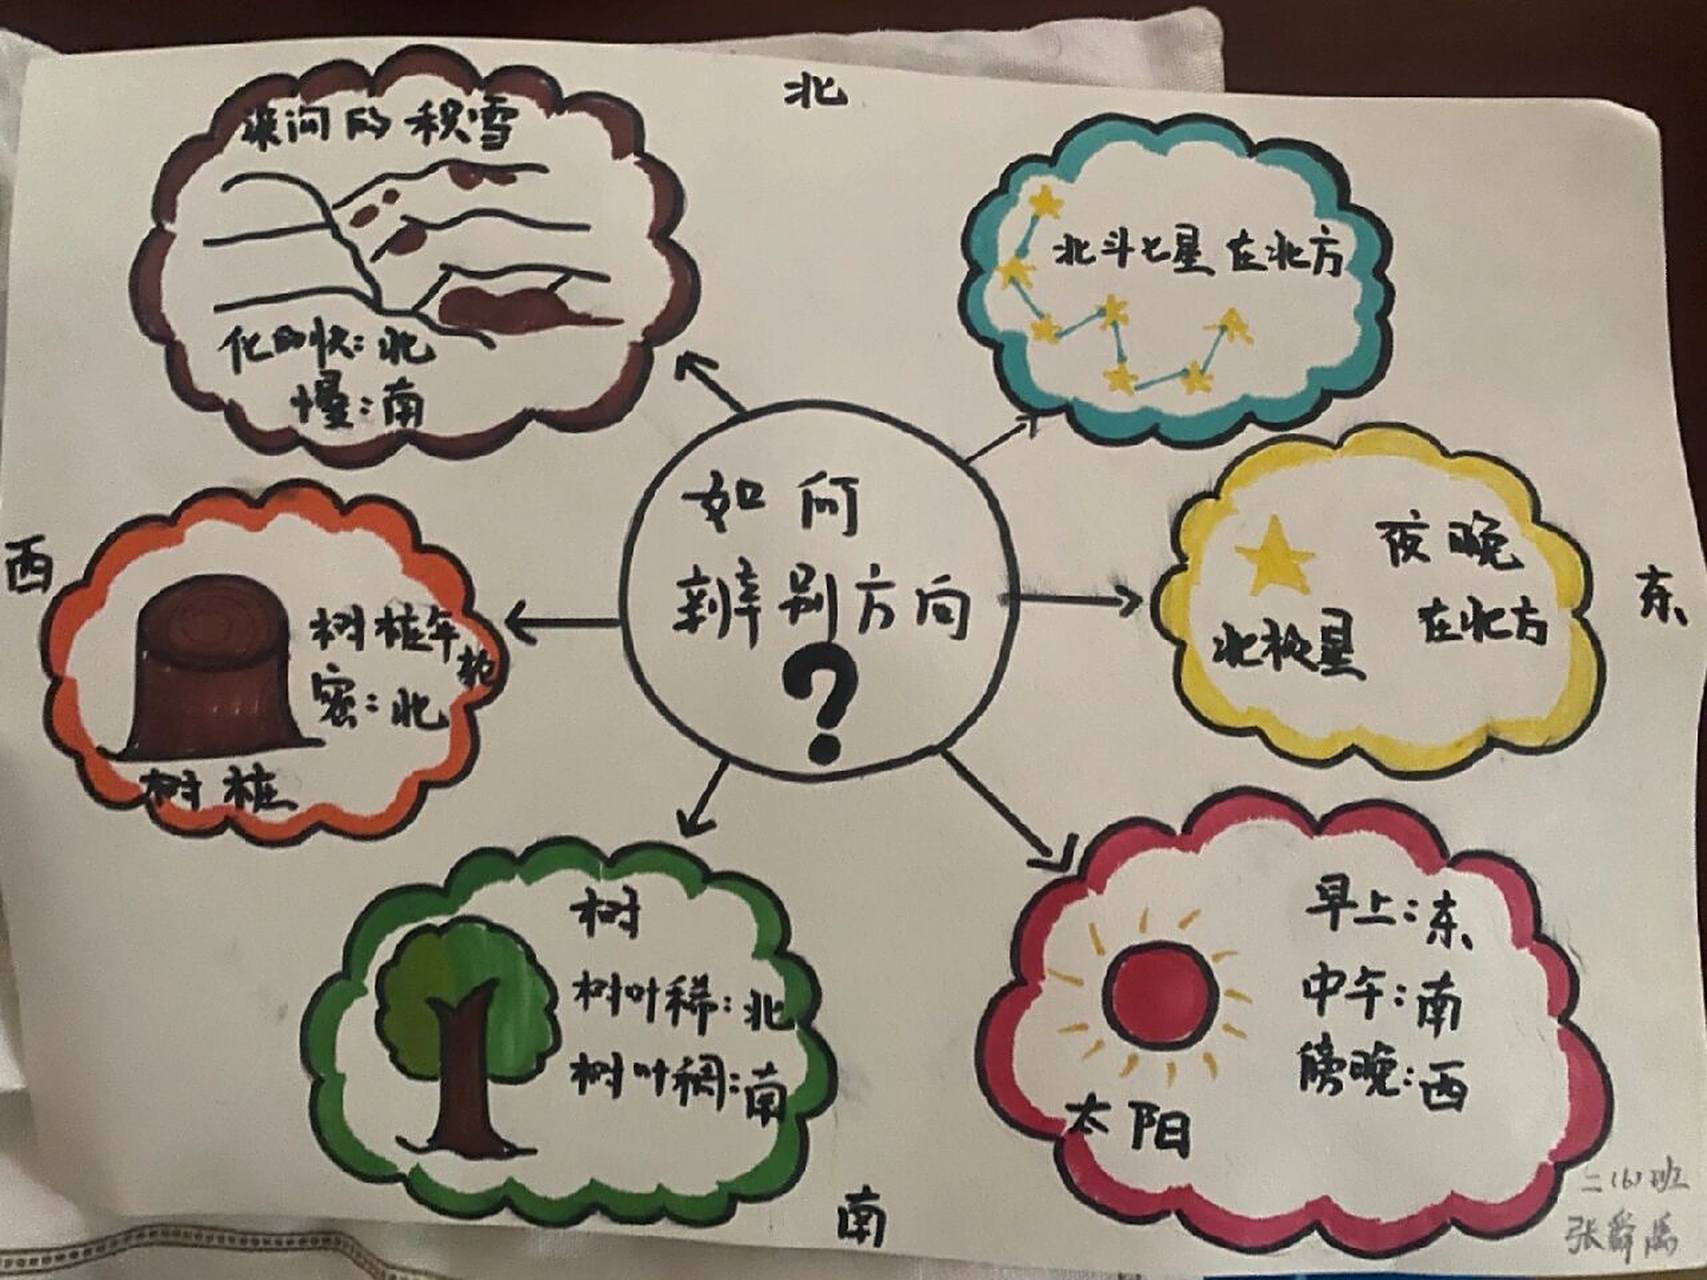 北
渠间的积雪
化的快：北
慢：南
北斗七星在北方
西
树桩年轮
密：北
树桩
如何
辨别方向
?
夜晚
北极星
在北方
东
树
树叶稀：北
树叶稠：南
早上：东
中午：南
傍晚：西
太阳
南
二(6)班
张舜禹